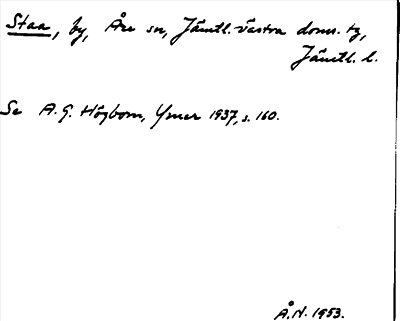 Staa, by, Åre sn, Jämtl. västra doms. tg,
Jämtl. l.
Se A. G. Högbom, Ymer 1937, s. 160.
Å. N. 1953.